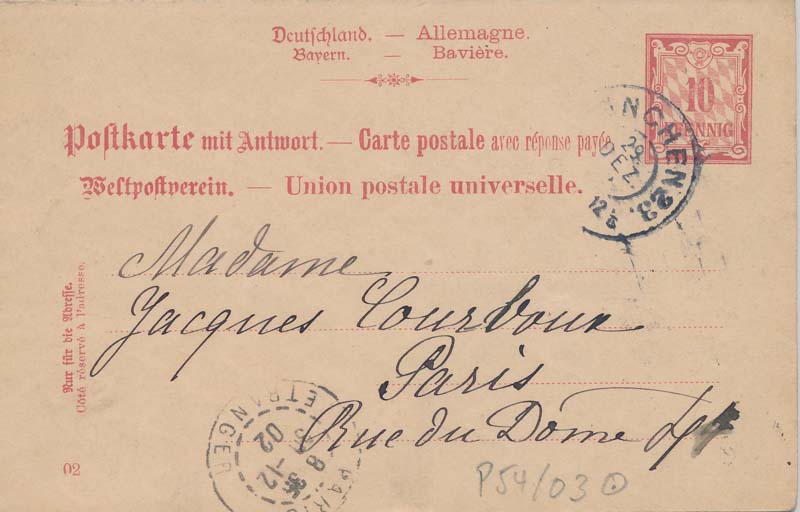 Deutschland. — Allemagne.
Bayern. — Bavière.
10
PFENNIG
Postkarte mit Antwort. — Carte postale avec réponse payée
Weltpostverein. — Union postale universelle.
MÜNCHEN 23.
29
DEZ.
12
Madame
Jacques Courvoux
Paris
Rue du Dôme 4
Nur für die Adresse.
Côté réservé à l'adresse.
ETRANGER
PARIS
8
-12
02
02
P54/03